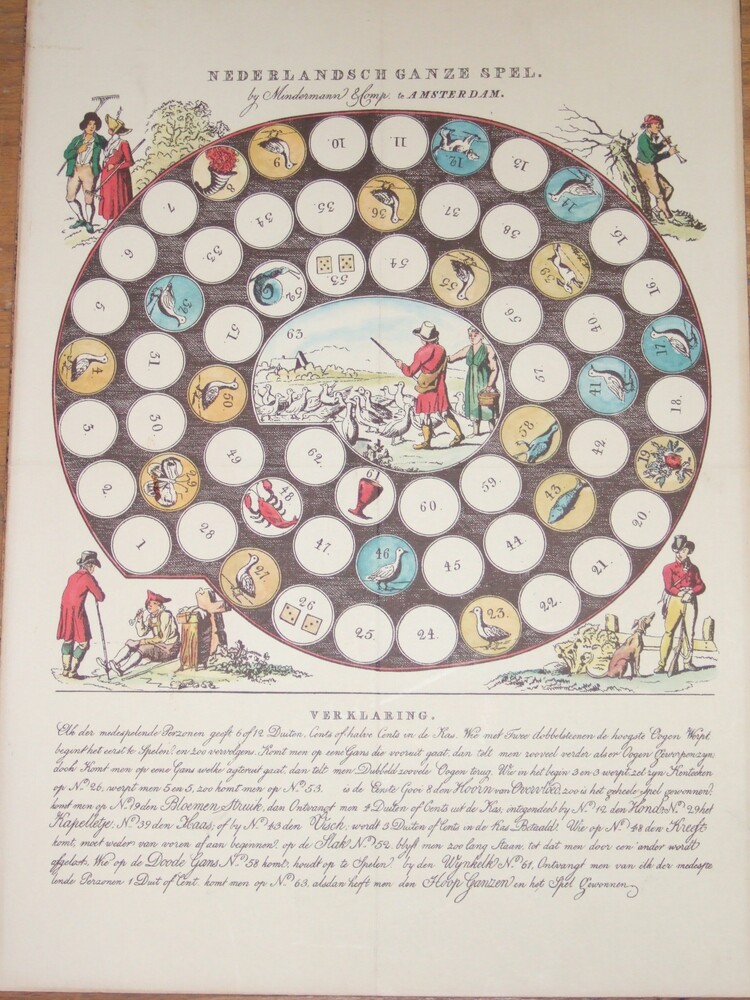 NEDERLANDSCH GANZE SPEL.
by Mindermann & Comp. te AMSTERDAM.
1
2.
3.
4
5.
6.
7.
8
9
10.
11.
12.
13.
14
15.
16.
17
18.
19
20.
21.
22.
23.
24.
25.
26
27
28
29
30.
31.
32
33.
34.
35.
36
37.
38.
39
40.
41
42.
43
44.
45
46
47.
48
49
50
51
52
53.
54.
55
56
57.
58
59.
60.
61
62.
63
VERKLARING.
Elk der medespelende Perzonen geeft 6 of 12 Duiten, Cents of halve Cents in de Kas. Wie met Twee dobbelsteenen de hoogste Oogen Werpt,
begint het eerst te Spelen, en zoo vervolgens. Komt men op eene Gans die vooruit gaat, dan telt men zooveel verder als er Oogen Geworpen zyn,
doch Komt men op eene Gans welke agteruit gaat, dan telt men Dubbeld zoovele Oogen terug. Wie in het begin 3 en 3 werpt zet zyn Kenteeken
op No. 26, werpt men 5 en 5, zoo komt men op No. 53. is de Eerste Gooi 8 den Hoorn van Overvloed, zoo is het geheele spel gewonnen,
komt men op No. 19 den Bloemen Struik, dan Ontvangt men 4 Duiten of Cents uit de Kas, integendeel by No. 12 den Hond, No. 29 het
Kapelletje, No. 39 den Haas, of by No. 43 den Visch, wordt 3 Duiten of Cents in de Kas Betaald. Wie op No. 48 den Kreeft
komt, moet weder van voren af aan beginnen, op de Slak No. 52, blyft men zoo lang Staan, tot dat men door een ander wordt
afgelost. Wie op de Doode Gans No. 58 komt, houdt op te Spelen, by den Wynkelk No. 61, Ontvangt men van elk der medespe
lende Perzonen 1 Duit of Cent, komt men op No. 63, alsdan heeft men den Hoop Ganzen en het Spel Gewonnen.